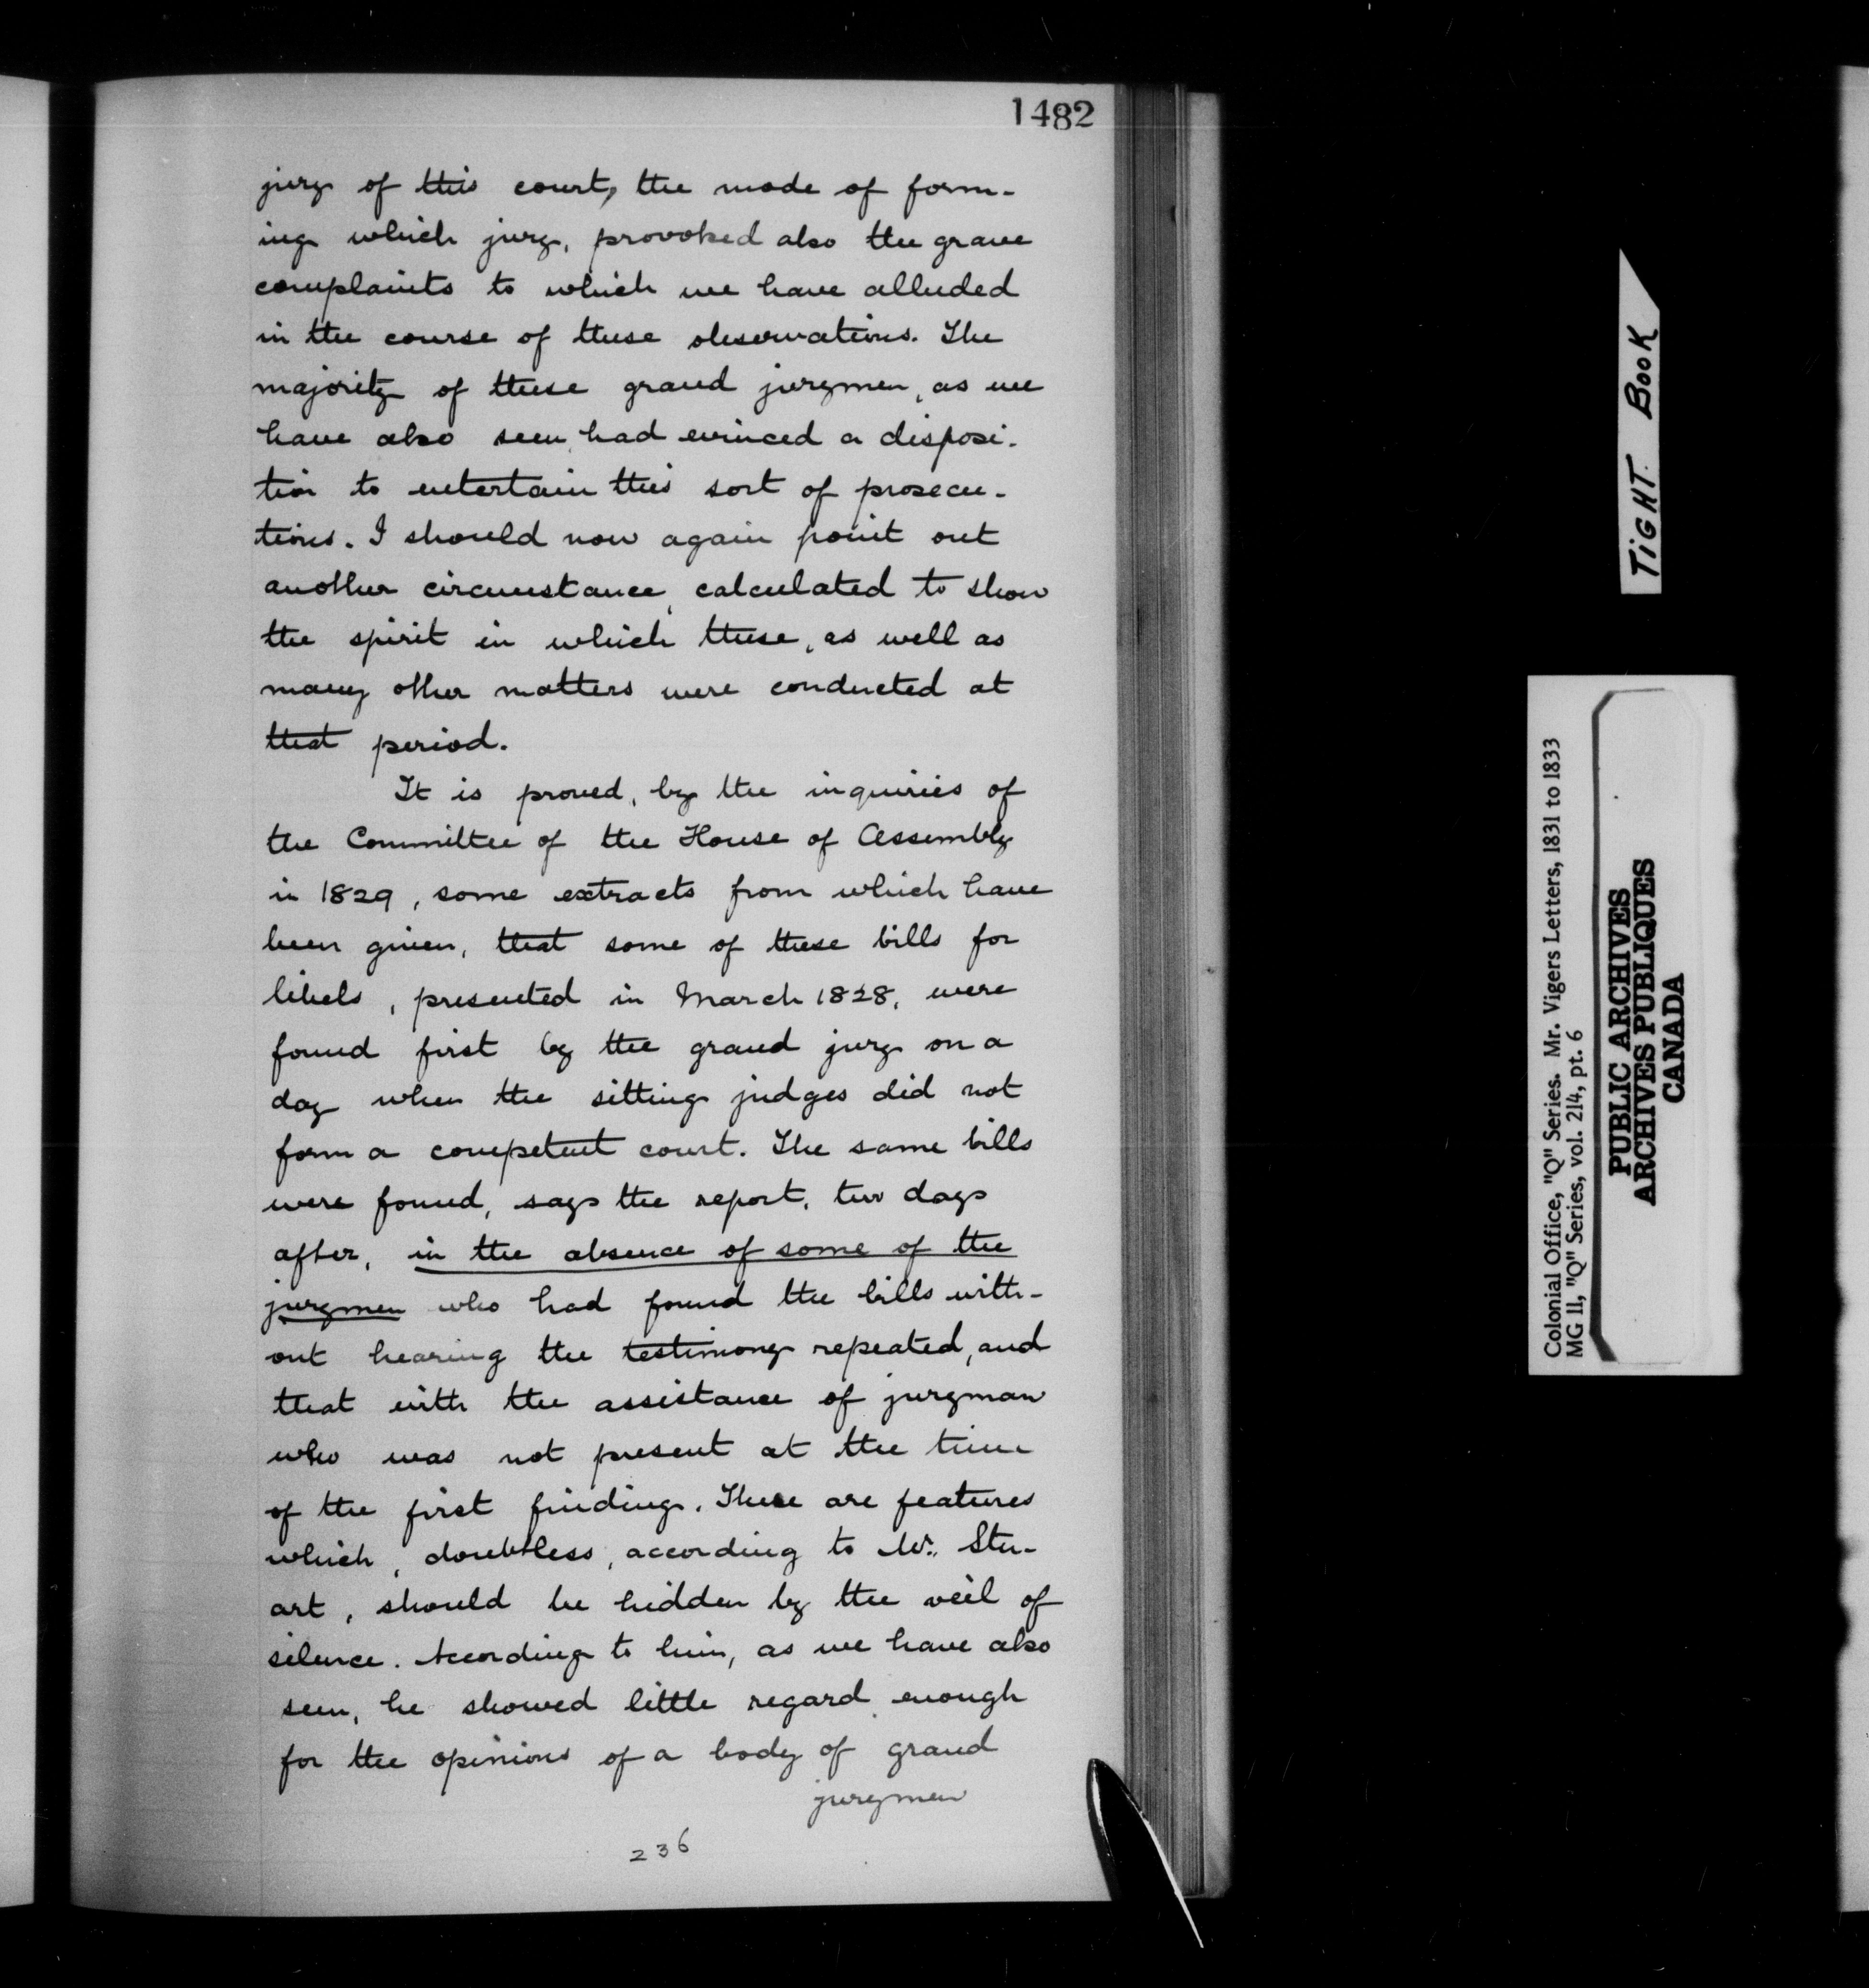 1482
jury of this court, the mode of form-
ing which jury, provoked also the grave
complaints to which we have alluded
in the course of these observations. The
majority of these grand jurymen, as we
have also seen, had evinced a disposi-
tion to entertain this sort of prosecu-
tions. I should now again point out
another circumstance, calculated to show
the spirit in which these, as well as
many other matters were conducted at
that period.
It is proved, by the inquiries of
the Committee of the House of Assembly
in 1829, some extracts from which have
been given, that some of these bills for
libels, presented in March 1828, were
found first by the grand jury on a
day when the sitting judges did not
form a competent court. The same bills
were found, says the report, two days
after, in the absence of some of the
jurymen who had found the bills with-
out hearing the testimony repeated, and
that with the assistance of juryman
who was not present at the time
of the first finding. These are features
which, doubtless, according to Mr. Stu-
art, should be hidden by the veil of
silence. According to him, as we have also
seen, he showed little regard enough
for the opinions of a body of grand
jurymen
236
TIGHT BOOK
Colonial Office, "Q" Series. Mr. Vigers Letters, 1831 to 1833
MG 11, "Q" Series, vol. 214, pt. 6
PUBLIC ARCHIVES
ARCHIVES PUBLIQUES
CANADA